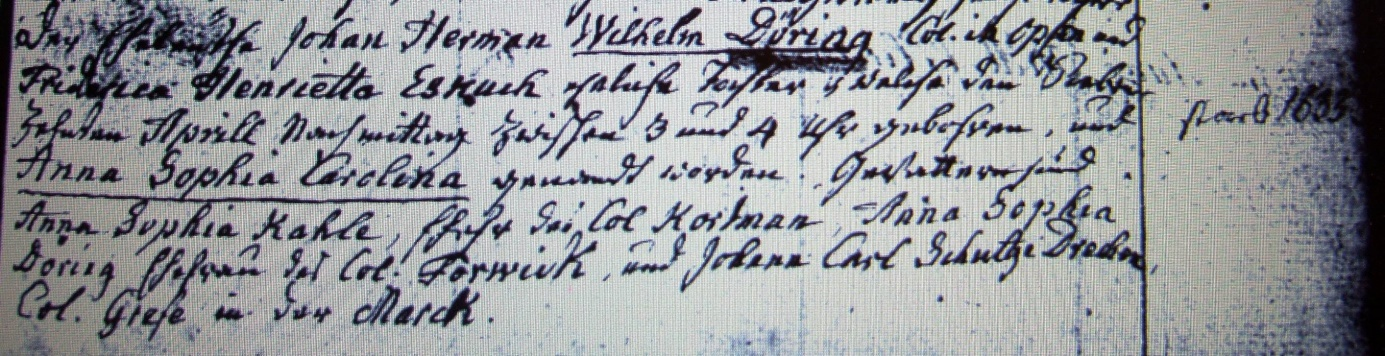 der Eheleuthe Johan Herman Wilhelm Döring Col. in und
Friderica Henrietta Eskuch eheliche Tochter, welche den
zehnden Aprill Nachmittag zwischen 3 und 4 Uhr gebohren, und
starb 1835
Anna Sophia Carolina genandt worden. Gevattern sind.
Anna Sophia Kahle, Ehefr des Col Kortman, Anna Sophia
Döring Ehefrau des Col. Forwick, und Johann Carl Schultze
Col. Giese in der Marck.